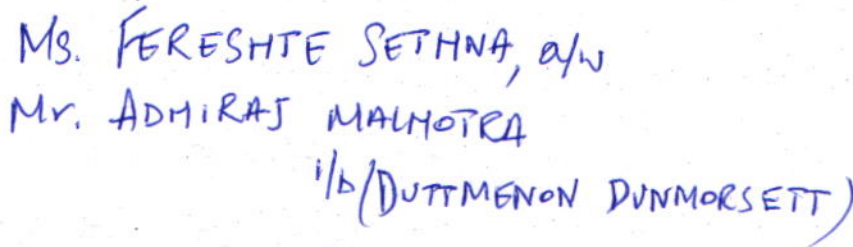 Ms. FERESHTE SETHNA, a/w
Mr. ADHIRAJ MALHOTRA
i/b (DUTTMENON DUNMORSETT)